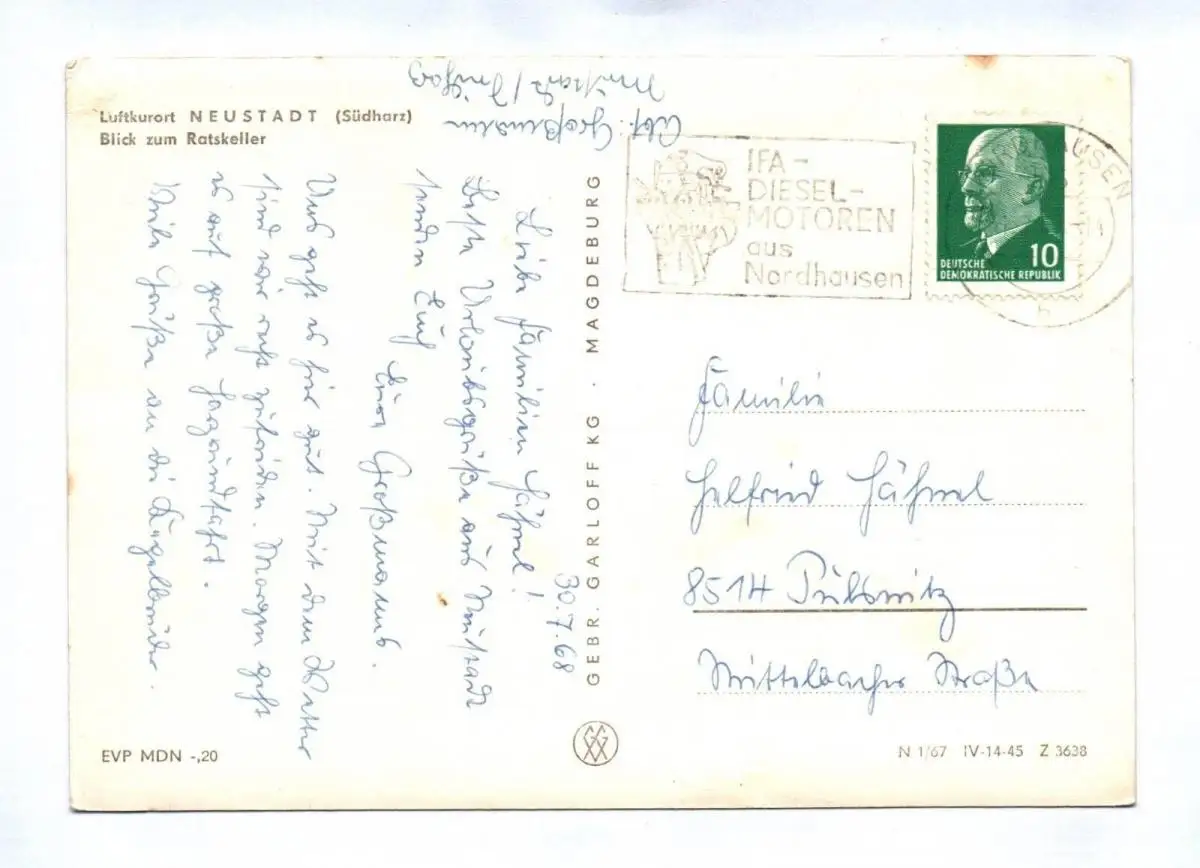 Luftkurort NEUSTADT (Südharz)
Blick zum Ratskeller
Abs. Großmann
Neustadt /
30.7.68
Liebe Familien Hähnel!
Beste Urlaubsgrüße aus Neustadt
senden Euch
Eure Großmanns.
Uns geht es hier gut. Mit dem Wetter
sind wir recht zufrieden. Morgen geht
es auf große Harzrundfahrt.
Viele Grüße an die Kegelbrüder.
GEBR. GARLOFF KG · MAGDEBURG
IFA-
DIESEL-
MOTOREN
aus
Nordhausen
HAUSEN
h
10
DEUTSCHE
DEMOKRATISCHE REPUBLIK
Familie
Helfried Hähnel
8514 Pulsnitz
Mittelbacher Straße
EVP MDN -,20
N 1/67 IV-14-45 Z 3638